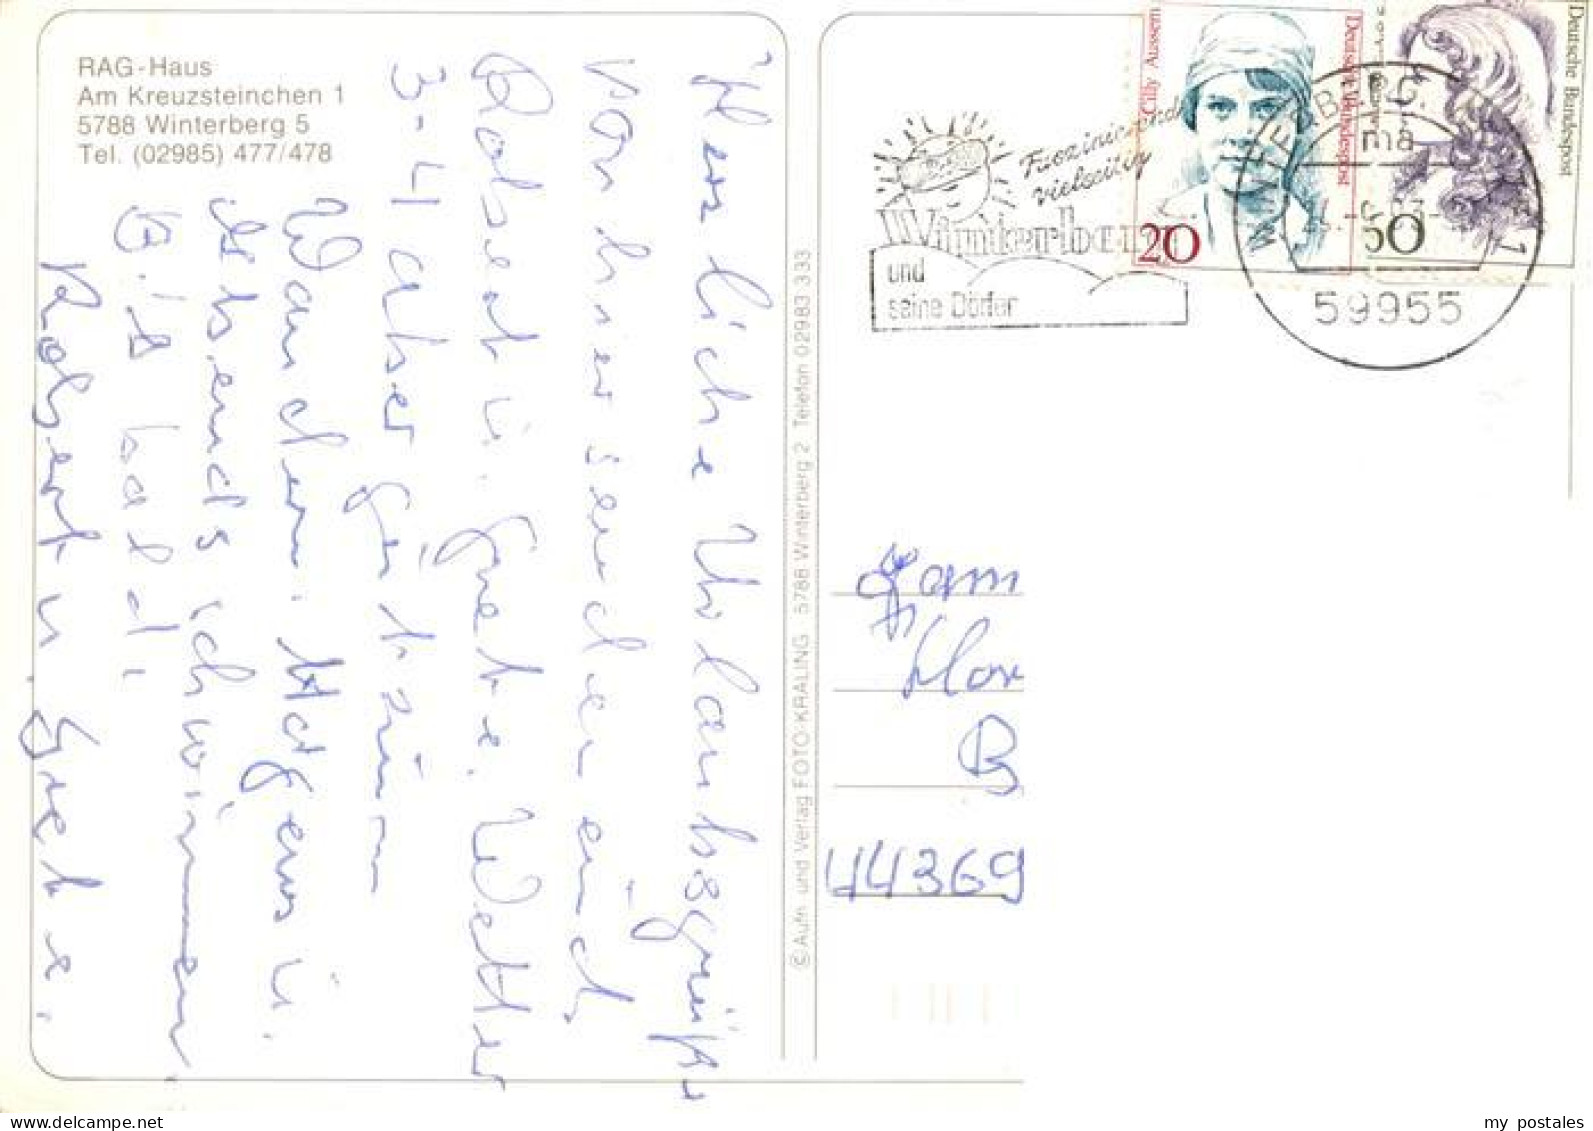 RAG-Haus
Am Kreuzsteinchen 1
5788 Winterberg 5
Tel. (02985) 477/478
Herzliche Urlaubsgrüße
von hier senden euch
Robert u. Grete. Wetter
3-4 aber gut zum
Wandern. Morgens u.
Abends schwimmen
Bis bald,
Robert u. Grete.
© Aufn. und Verlag FOTO-KRALING 5788 Winterberg 2 Telefon 02983 333
Faszinierend
vielseitig
Winterberg
und
seine Dörfer
Cilly Aussem
Deutsche Bundespost
20
Deutsche Bundespost
50
WINTERBERG
1
ma
59955
Fam
Hor
B
44369
my postales